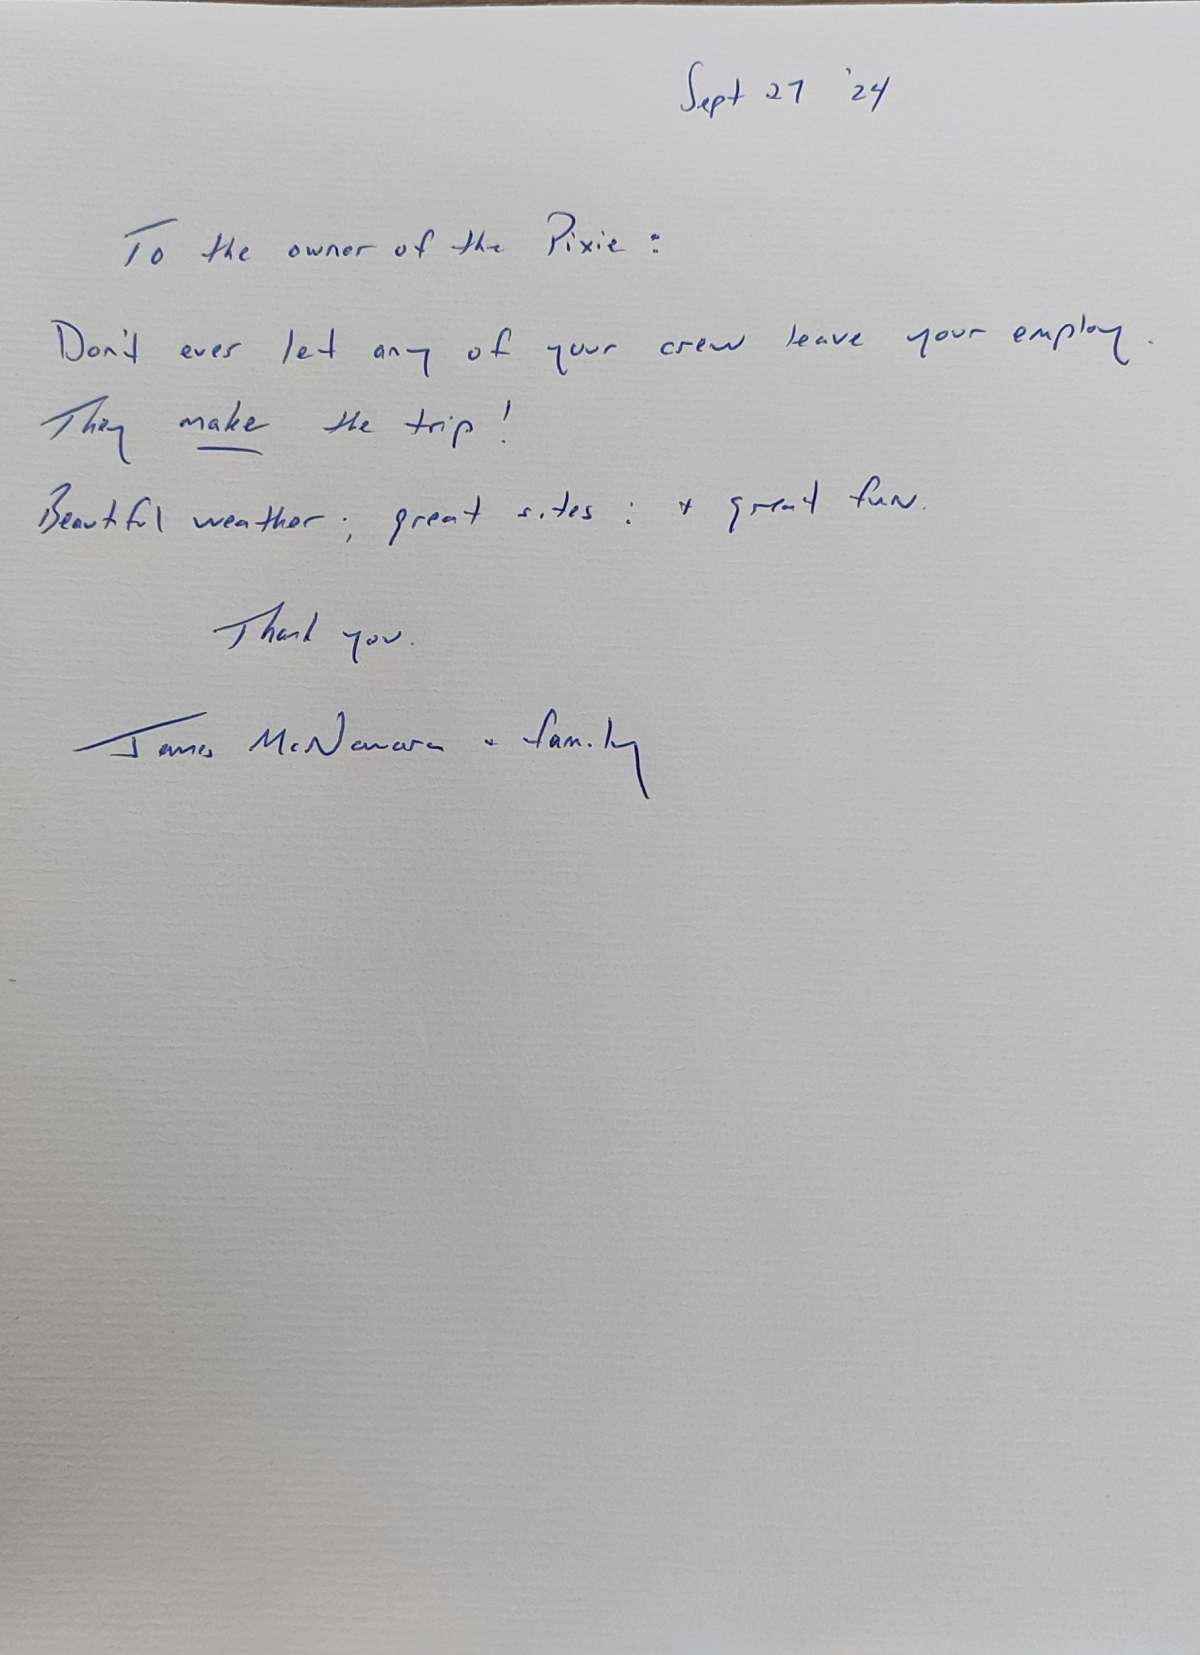 Sept 27 '24
To the owner of the Pixie:
Don't ever let any of your crew leave your employ.
They make the trip!
Beautiful weather; great sites; + great fun.
Thank you.
James McNamara + family